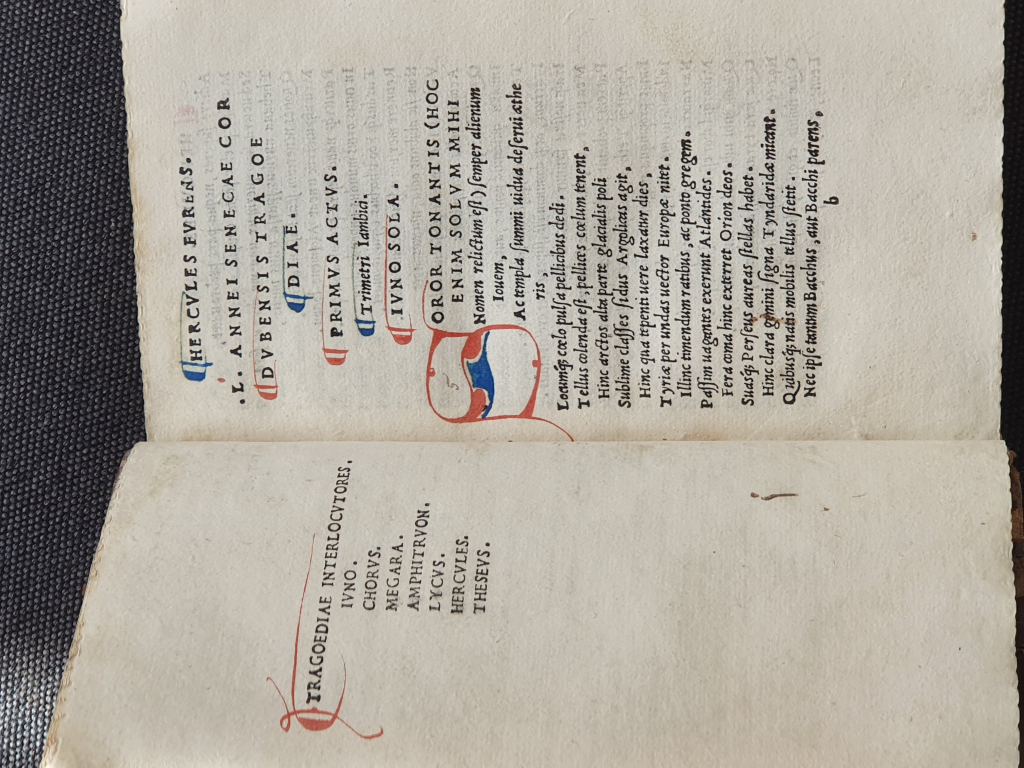 TRAGOEDIAE INTERLOCVTORES.
IVNO.
CHORVS.
MEGARA.
AMPHITRVON.
LYCVS.
HERCVLES.
THESEVS.
HERCVLES FVRENS.
.L. ANNEI SENECAE COR
DVBENSIS TRAGOE
DIAE.
PRIMVS ACTVS.
Trimetri Iambici.
IVNO SOLA.
S
OROR TONANTIS (HOC
ENIM SOLVM MIHI
Nomen relictum eſt) ſemper alienum
Iouem,
Ac templa ſummi uidua deſerui æthe
ris,
Locumq́; cœlo pulſa pellicibus dedi.
Tellus colenda eſt, pellices cœlum tenent,
Hinc arctos alta parte glacialis poli
Sublime claſſes ſidus Argolicas agit,
Hinc qua tepenti uere laxatur dies,
Tyriæ per undas uector Europæ nitet.
Illinc timendum ratibus, ac ponto gregem.
Paſſim uagantes exerunt Atlantides.
Fera coma hinc exterret Orion deos.
Suasq́; Perſeus aureas ſtellas habet.
Hinc clara gemini ſigna Tyndaridæ micant.
Quibusq́; natis mobilis tellus ſtetit.
Nec ipſe tantum Bacchus, aut Bacchi parens,
b